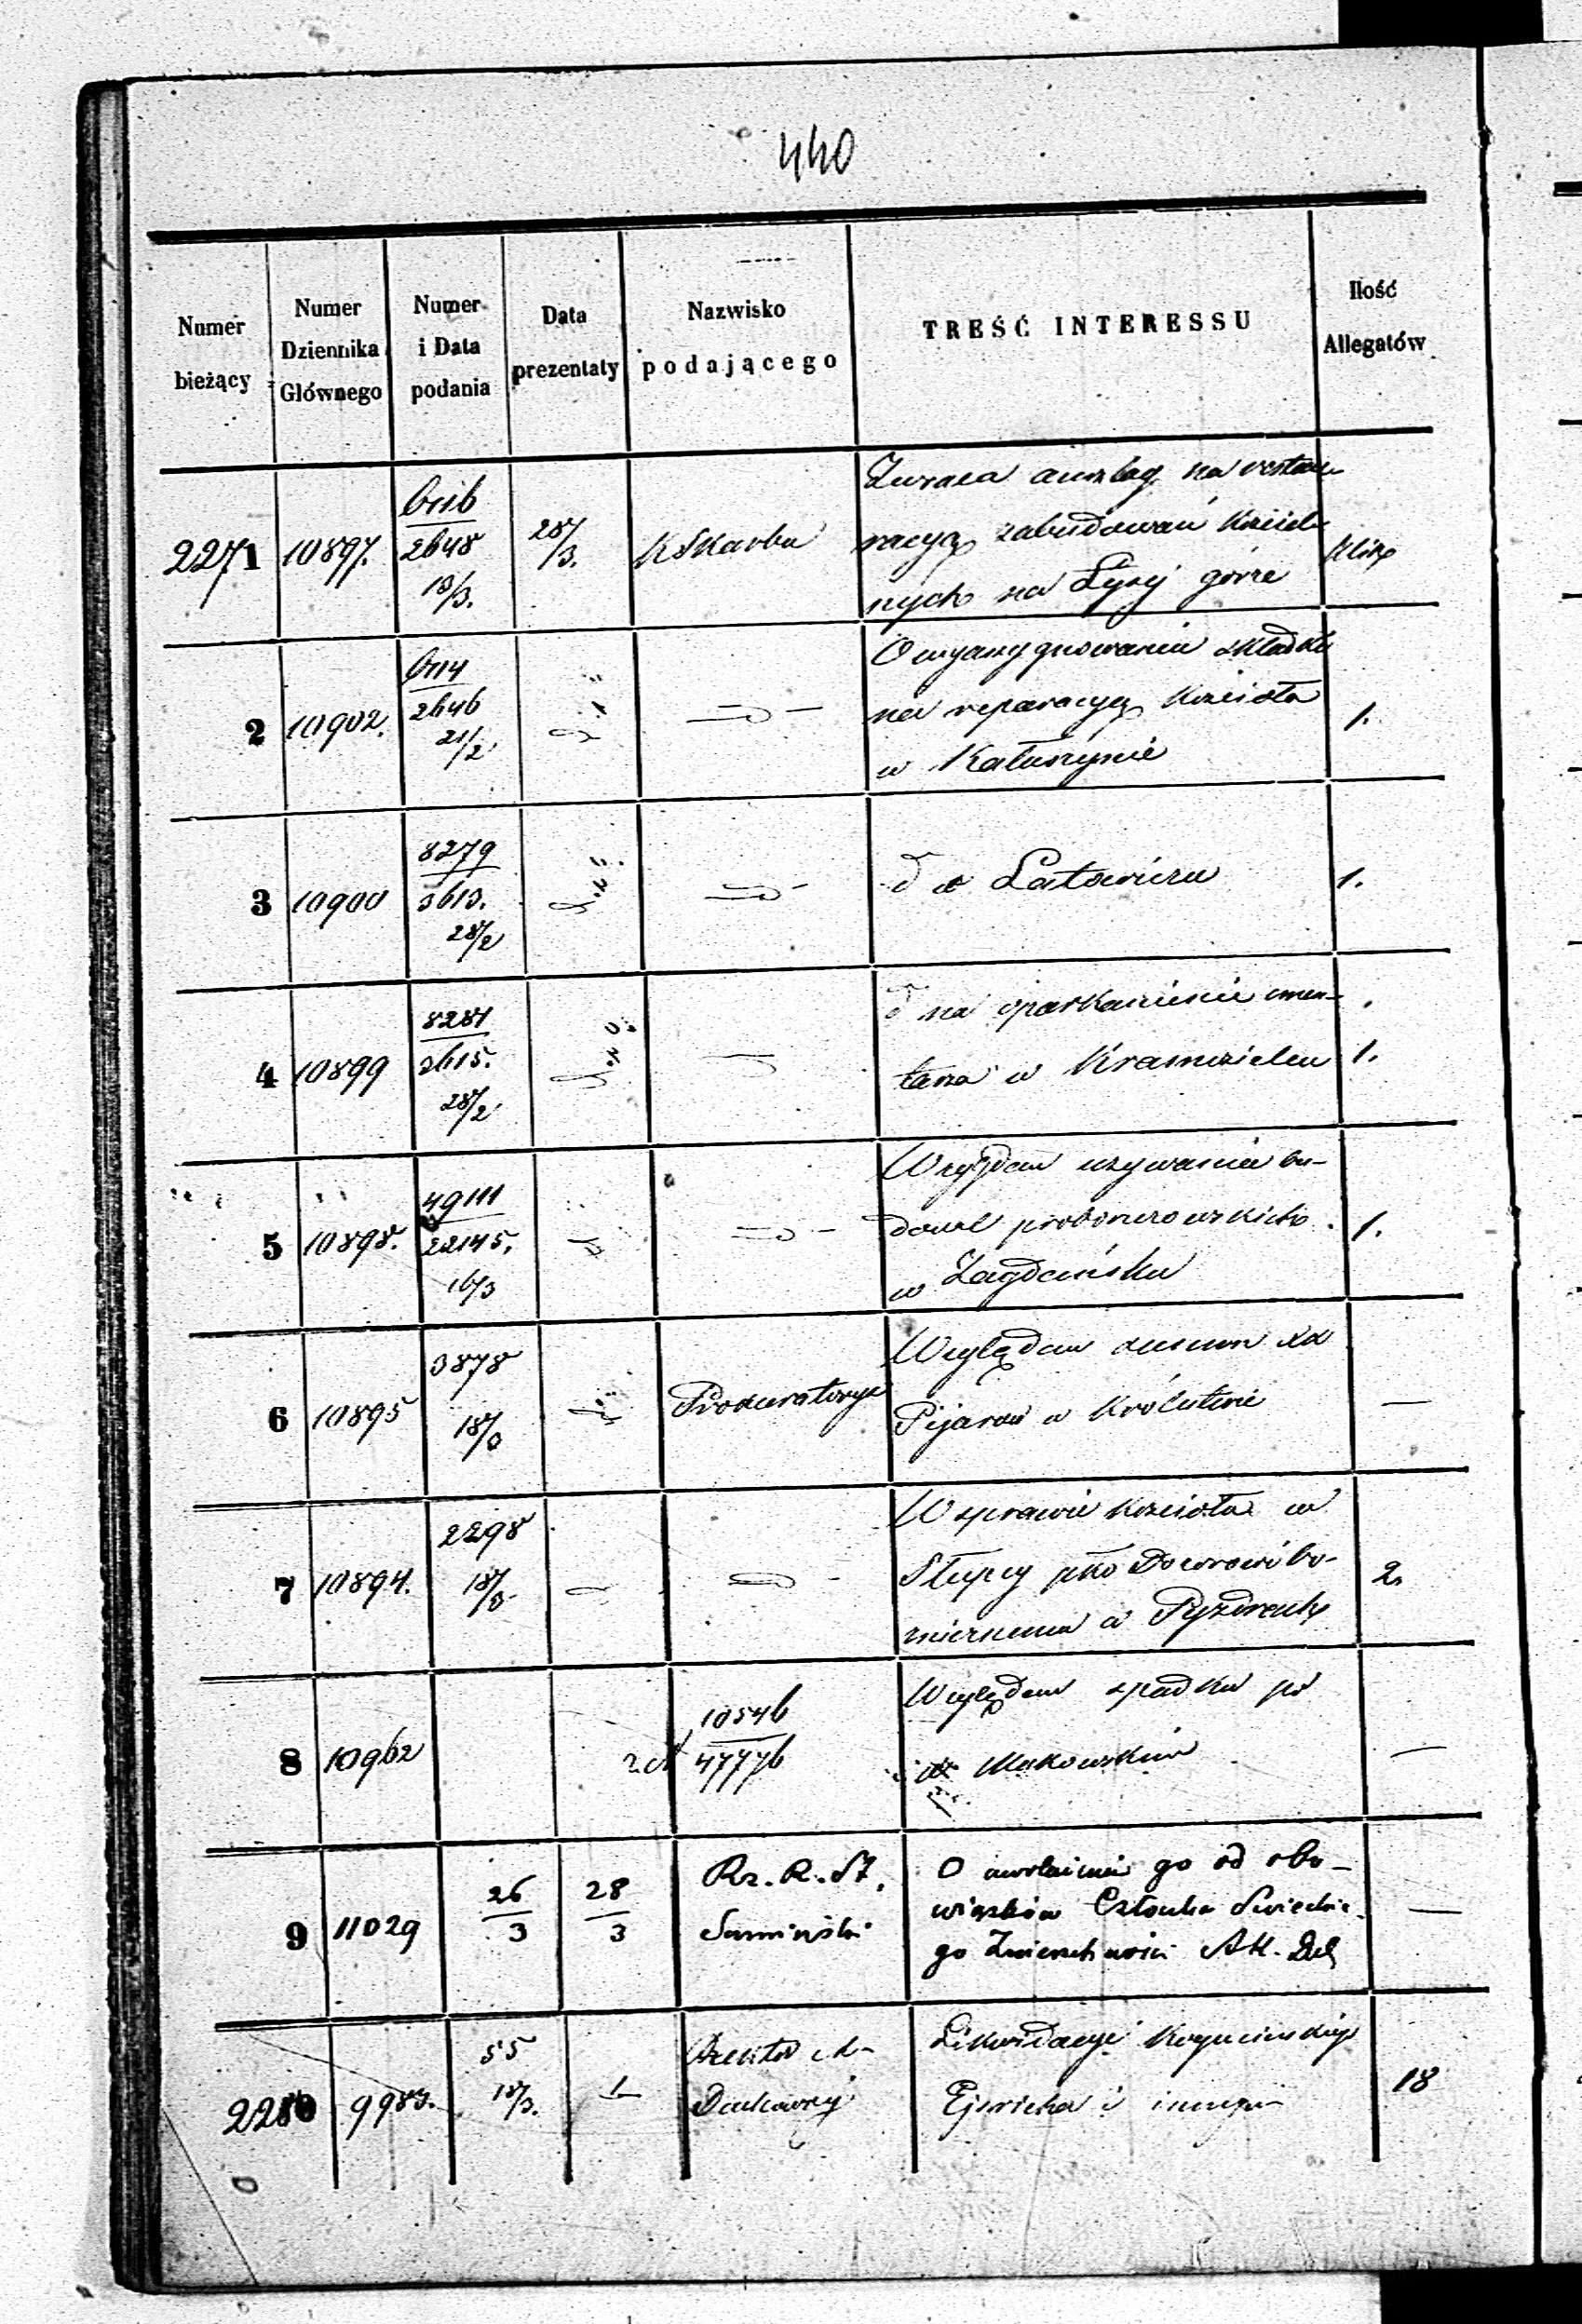 440
Numer bieżący
Numer Dziennika Głównego
Numer i Data podania
Data prezentaty
Nazwisko podającego
TREŚĆ INTERESSU
Ilość Allegatów
2271 10897. 2648 28/3. KSkarbu
Zwraca anszlag na restau-
racyą zabudowań Kościel-
nych na Łysej górze
2 10902. 2646 21/2
O wyasygnowanie składki
na reparacyą Kościoła
w Kałuszynie
1.
3 10900 8279 3613. 28/2
d w Latowiczu
1.
4 10899 8281 3615. 28/2
d na oparkanienie cmen-
tarza w
1.
5 10898. 49111 22145. 16/3
Względem używania bu-
dowl proboszczowskich
w Zagdańsku
1.
6 10895 3878 18/3 Prokuratorya
Względem summ XX
Pijarów w Królestwie
—
7 10894. 2298 18/3
W sprawie Kościoła w
Słupcy pko Dozorowi bo-
żniczemu w Pyzdrach
2.
8 10962 10546 47776
Względem spadku po
Makowskim
—
9 11029 26/3 28/3 Rz. R. St.
O uwolnienie go od obo-
wiązków Członka Świeckie-
go Zwierzchności
—
2280 9983. 55 18/3. Duchownej
Likwidacye
i innych
18